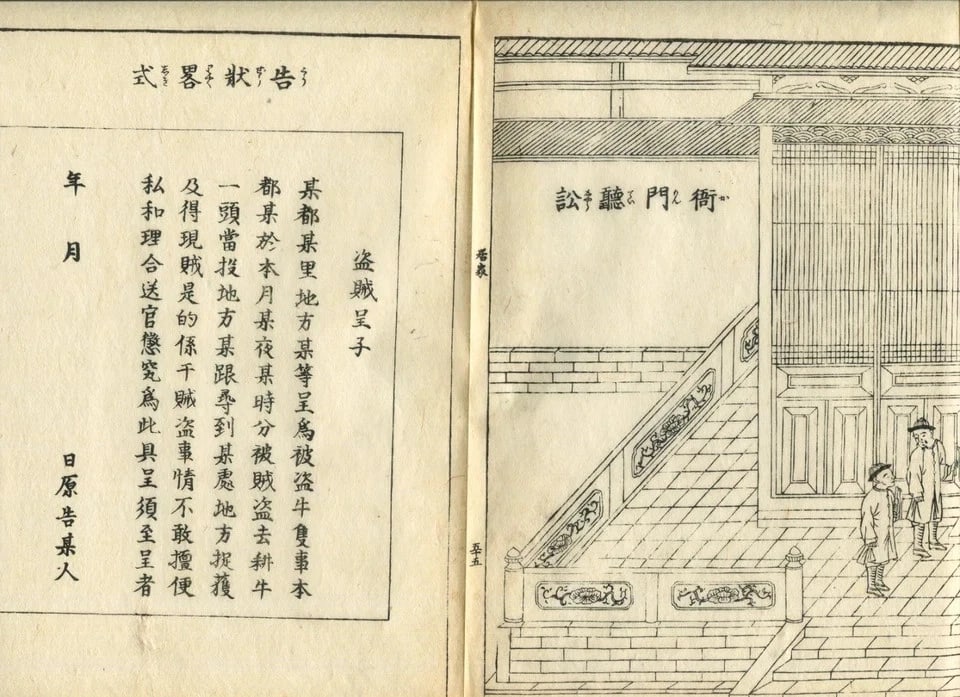 衙門聽訟
居家
告狀畧式
盗賊呈子
某都某里地方某等呈爲被盗牛隻事本
都某於本月某夜某時分被賊盗去耕牛
一頭當投地方某跟尋到某處地方捉獲
及得現賊是的係干賊盗事情不敢擅便
私和理合送官懲究爲此具呈須至呈者
年 月 日原告某人